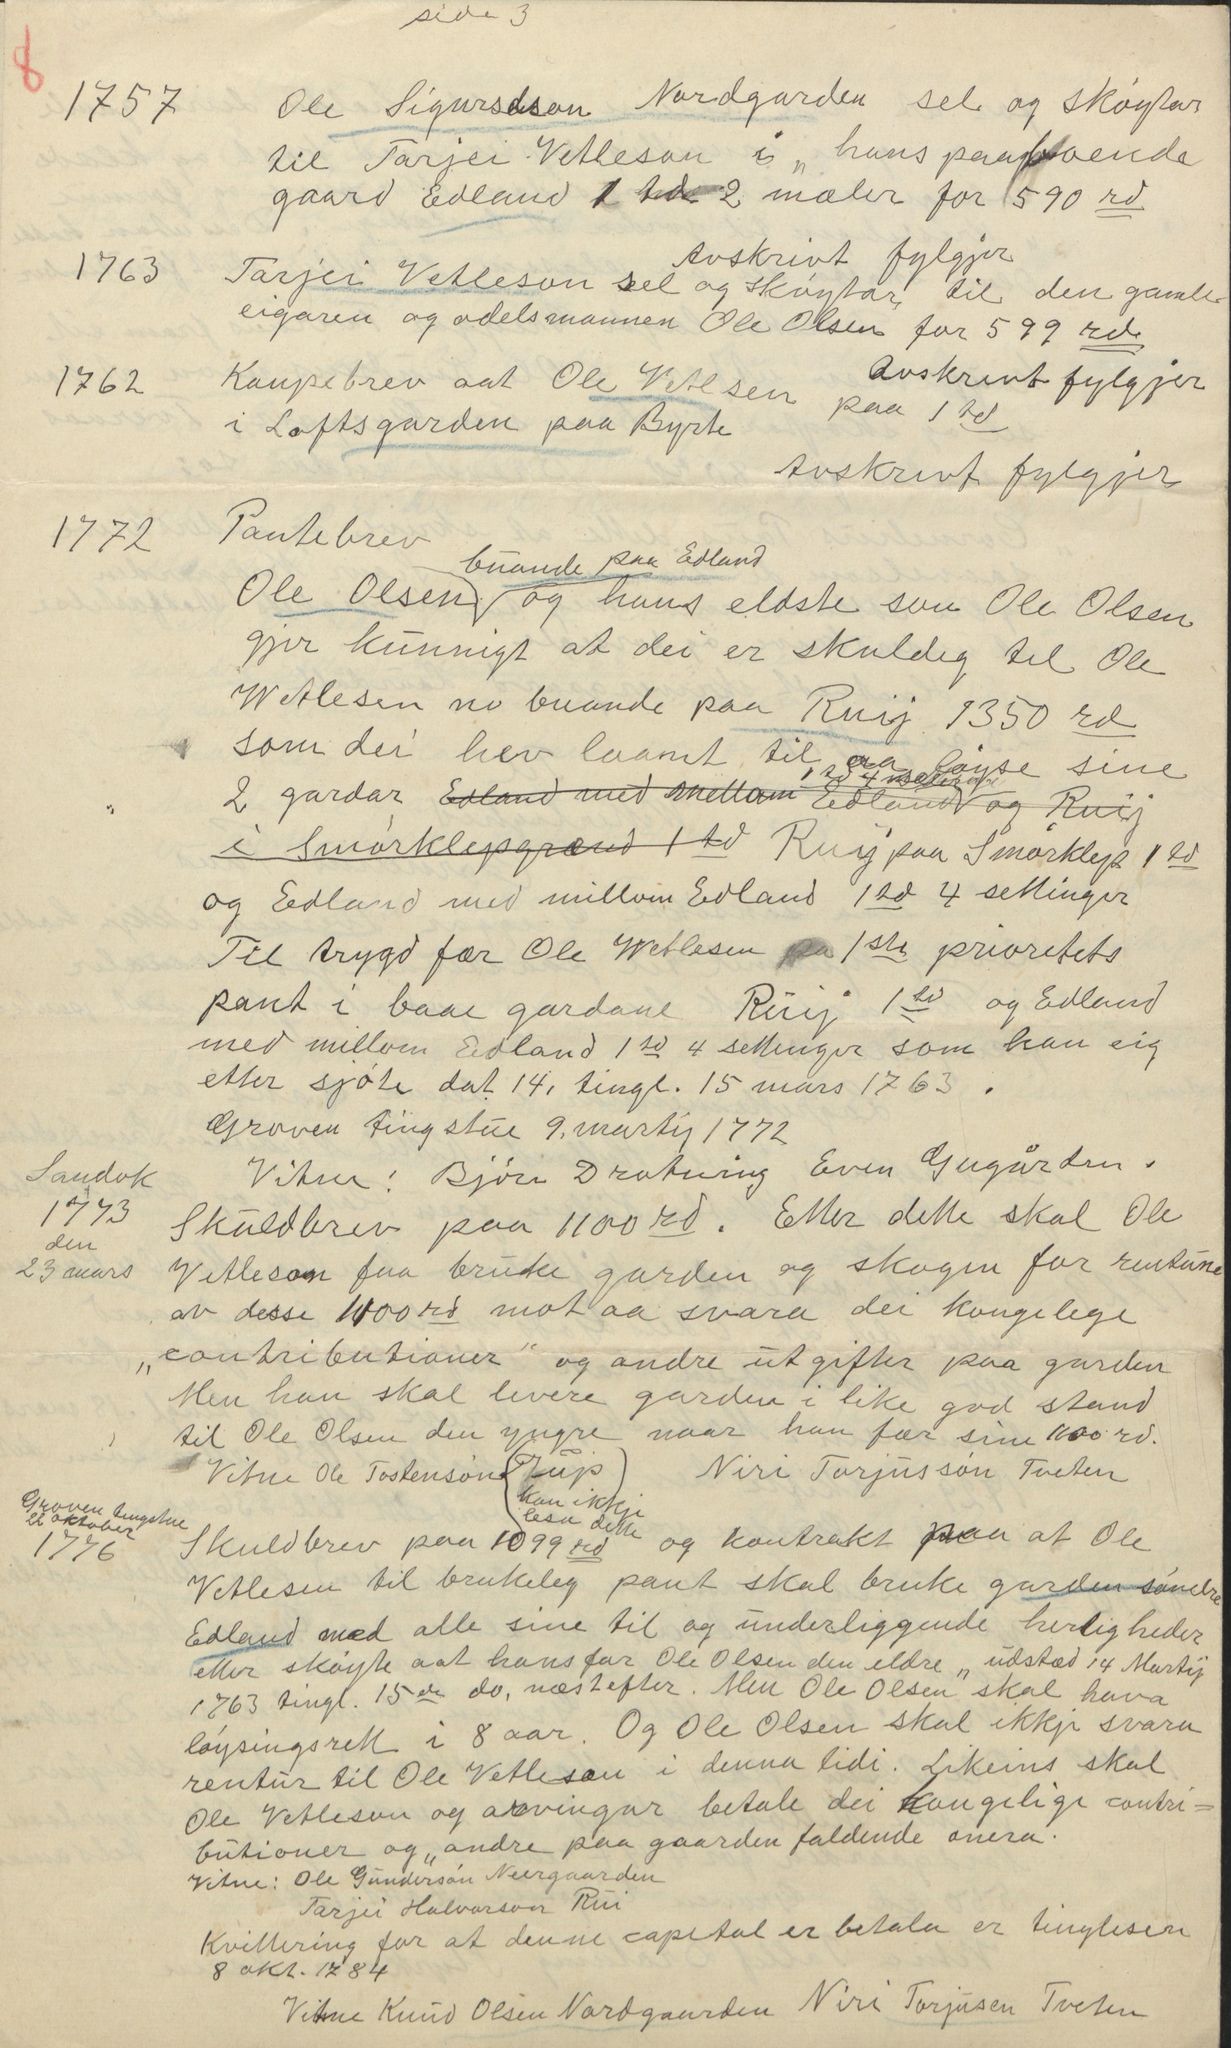 side 3
8
1757 Ole Sigurdson Nordgarden sel og skøytar
til Tarjei Vetleson i „hans paaboende
gaard Edland 1 td 2 mæler for 590 rd
Avskrivt fylgjer
1763 Tarjei Vetleson sel og skøytar til den gamle
eigaren og odelsmannen Ole Olsen for 599 rd.
Avskrivt fylgjer
1762 Kaupebrev aat Ole Vetlsen paa 1 td
i Loftsgarden paa Byrte
Avskrivt fylgjer
1772 Pantebrev
buande paa Edland
Ole Olsen og hans eldste son Ole Olsen
gjer kunnigt at dei er skuldig til Ole
Wetlesen no buande paa Ruij 1350 rd
som dei hev laant til aa løyse sine
1 td 4
2 gardar Edland med mellom Edland og Ruij
i Smørklepgrend 1 td Ruij paa Smørklep 1 td
og Edland med millom Edland 1 td 4 settinger
Til trygd fær Ole Wetlesen 1ste prioritets
pant i baae gardane Ruij 1 td og Edland
med millom Edland 1 td 4 settinger som han eig
etter sjøte dat 14, tingl. 15 mars 1763.
Groven tingstue 9. martij 1772
Vitne: Bjørn Drotning Even Gugården.
Laudok
1773
den
23 mars
Skuldbrev paa 1100 rd. Etter dette skal Ole
Vetleson faa bruke garden og skogen for rentune
av desse 1100 rd mot aa svara dei kongelege
„contributioner" og andre utgifter paa garden
Men han skal levere garden i like god stand
til Ole Olsen den yngre naar han fær sine 1100 rd.
Vitne Ole Tostensøn (Rup) Niri Torjussøn Tveten
kan ikkje
lesa dette
Groven tingstue
22 oktober
1776
Skuldbrev paa 1099 rd og kontrakt paa at Ole
Vetlesen til brukeleg pant skal bruke garden søndre
Edland med alle sine til og underliggende herligheder
etter skøyte aat hans far Ole Olsen den eldre „udstæd 14 Martij
1763 tingl. 15de do. næstefter. Men Ole Olsen skal hava
løysingsrett i 8 aar. Og Ole Olsen skal ikkje svara
rentur til Ole Vetleson i denna tidi. Likeins skal
Ole Vetleson og arvingar betale dei kongelige contri=
butioner og „andre paa gaarden faldende onera.
Vitne: Ole Gundersøn Neergaarden
Tarjei Halvorson Rui
Kvittering for at denne capital er betala er tinglesen
8 okt. 1784
Vitne Knud Olsen Nordgaarden Niri Torjusen Tveten